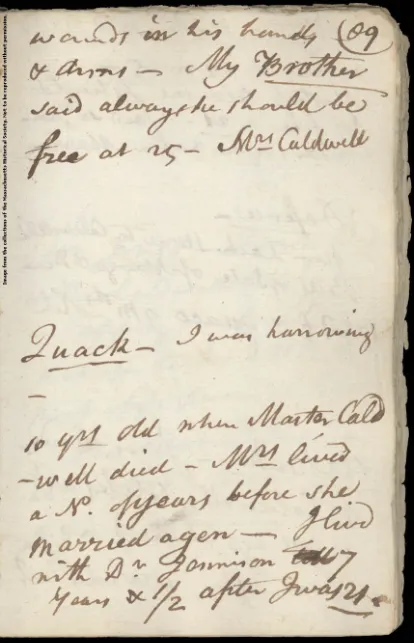 wounds in his hands (89
& Arms - My Brother
said always he should be
free at 25 - Mrs Caldwell
Quack - I was harrowing
-
10 yrs old when Master Cald
-well died - Mrs lived
a No. of years before she
married agen - I livd
with Dr Jennison 7
Years & 1/2 after I was 21 -
Image from the collections of the Massachusetts Historical Society. Not to be reproduced without permission.